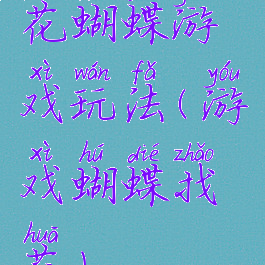 花蝴蝶游
xì wán fǎ yóu
戏玩法(游
xì hú dié zhǎo
戏蝴蝶找
huā
花)